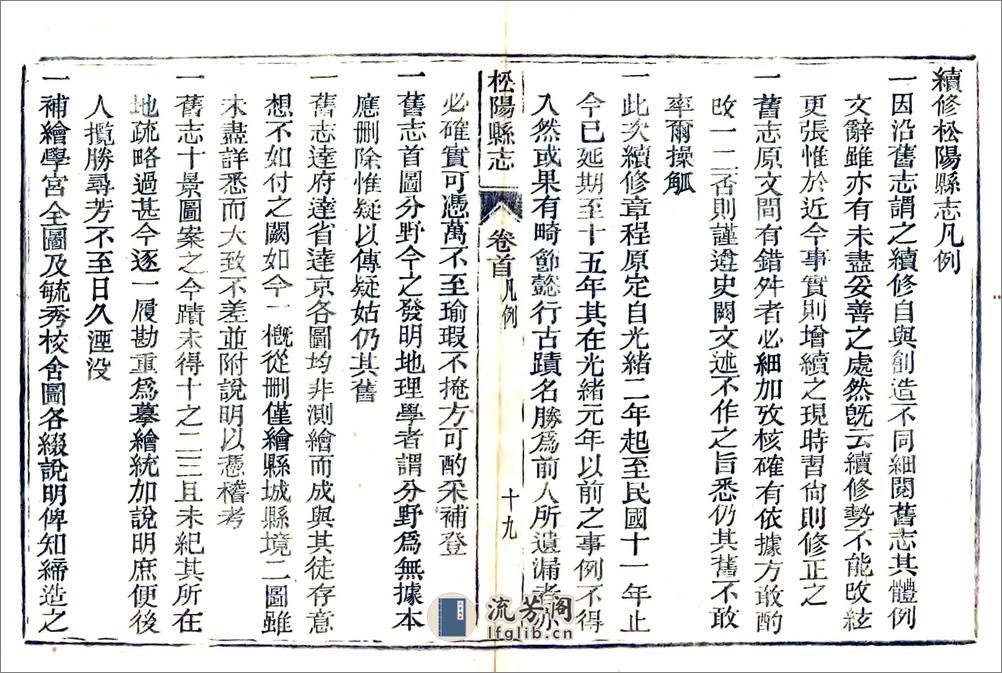 續修松陽縣志凡例
一因沿舊志謂之續修自與創造不同細閱舊志其體例
文辭雖亦有未盡妥善之處然旣云續修勢不能改絃
更張惟於近今事實則增續之現時習尙則修正之
一舊志原文間有錯舛者必細加攷核確有依據方敢酌
改一二否則謹遵史闕文述不作之旨悉仍其舊不敢
率爾操觚
一此次續修章程原定自光緒二年起至民國十一年止
今已延期至十五年其在光緒元年以前之事例不得
入然或果有畸節懿行古蹟名勝爲前人所遺漏者亦
松陽縣志
卷首凡例
十九
必確實可憑萬不至瑜瑕不掩方可酌采補登
一舊志首圖分野今之發明地理學者謂分野爲無據本
應删除惟疑以傳疑姑仍其舊
一舊志達府達省達京各圖均非測繪而成與其徒存意
想不如付之闕如今一槪從删僅繪縣城縣境二圖雖
未盡詳悉而大致不差並附說明以憑稽考
一舊志十景圖案之今蹟未得十之二三且未紀其所在
地疏略過甚今逐一履勘重爲摹繪統加說明庶便後
人攬勝尋芳不至日久湮没
一補繪學宫全圖及毓秀校舍圖各綴說明俾知締造之
流芳阁
lfglib.cn